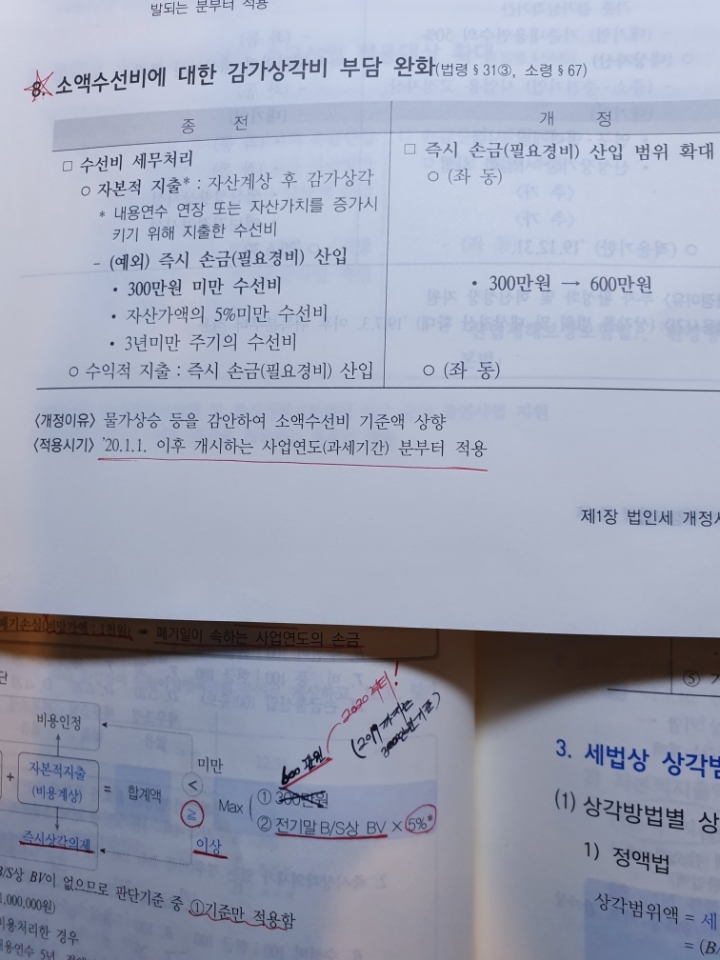 발되는 분부터 적용
8. 소액수선비에 대한 감가상각비 부담 완화(법령§31③, 소령§67)
종 전
개 정
□ 수선비 세무처리
○ 자본적 지출* : 자산계상 후 감가상각
* 내용연수 연장 또는 자산가치를 증가시
키기 위해 지출한 수선비
- (예외) 즉시 손금(필요경비) 산입
• 300만원 미만 수선비
• 자산가액의 5%미만 수선비
• 3년미만 주기의 수선비
○ 수익적 지출 : 즉시 손금(필요경비) 산입
□ 즉시 손금(필요경비) 산입 범위 확대
○ (좌 동)
• 300만원 → 600만원
○ (좌 동)
<개정이유> 물가상승 등을 감안하여 소액수선비 기준액 상향
<적용시기> '20.1.1. 이후 개시하는 사업연도(과세기간) 분부터 적용
제1장 법인세 개정
➡ 폐기일이 속하는 사업연도의 손금
단
비용인정
+
자본적지출
(비용계상)
= 합계액
즉시상각의제
미만
<
≧
이상
Max
① 300만원
② 전기말 B/S상 BV × 5%*
600만원
2020부터!
(2019까지는
300만원기준)
B/S상 BV이 없으므로 판단기준 중 ①기준만 적용함
1,000,000원)
비용처리한 경우
내용연수 5년,
⑤
3. 세법상 상각범
(1) 상각방법별 상
1) 정액법
상각범위액 = 세
= (B/